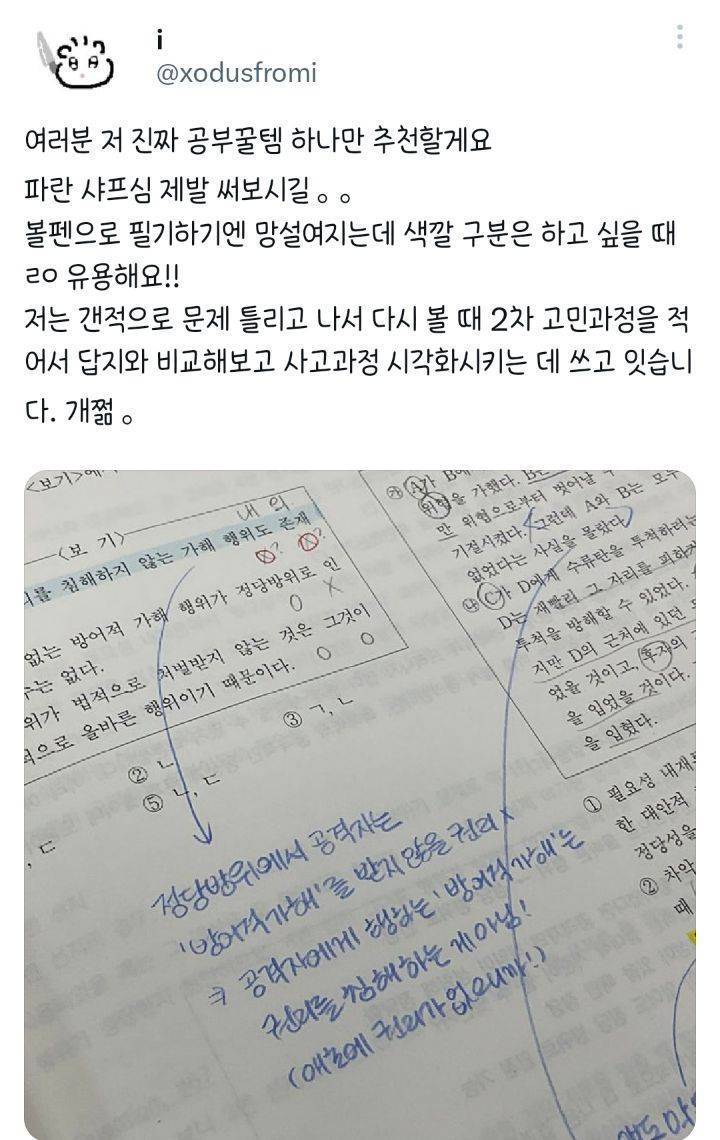 i
@xodusfromi
여러분 저 진짜 공부꿀템 하나만 추천할게요
파란 샤프심 제발 써보시길 。。
볼펜으로 필기하기엔 망설여지는데 색깔 구분은 하고 싶을 때
ㄹㅇ 유용해요!!
저는 갠적으로 문제 틀리고 나서 다시 볼 때 2차 고민과정을 적
어서 답지와 비교해보고 사고과정 시각화시키는 데 쓰고 잇습니
다. 개쩖 。
<보기>에
내 의
<보 기>
리를 침해하지 않는 가해 행위도 존재
없는 방어적 가해 행위가 정당방위로 인
수는 없다.
위가 법적으로 처벌받지 않는 것은 그것이
적으로 올바른 행위이기 때문이다.
② ㄴ
③ ㄱ, ㄴ
⑤ ㄴ, ㄷ
, ㄷ
정당방위에서 공격자는
'방어적 가해'를 받지 않을 권리 x
'방어적 가해'는
공격자에게 행하는
권리를 침해하는 게 아님!
(애초에 권리가 없으니까!)
㉮ A가 B에
위협을 가했다. B는
만 위협으로부터 벗어날 수
기절시켰다. 그런데 A와 B는 모두
없었다는 사실을 몰랐다.
㉯ C가 D에게 수류탄을 투척하려는
D는 재빨리 그 자리를 피하
투척을 방해할 수 있었다.
지만 D의 근처에 있던
었을 것이고, 후자의
을 입었을 것이다.
을 입혔다.
① 필요성 내재
한 대안적
정당성을
② 차악
때